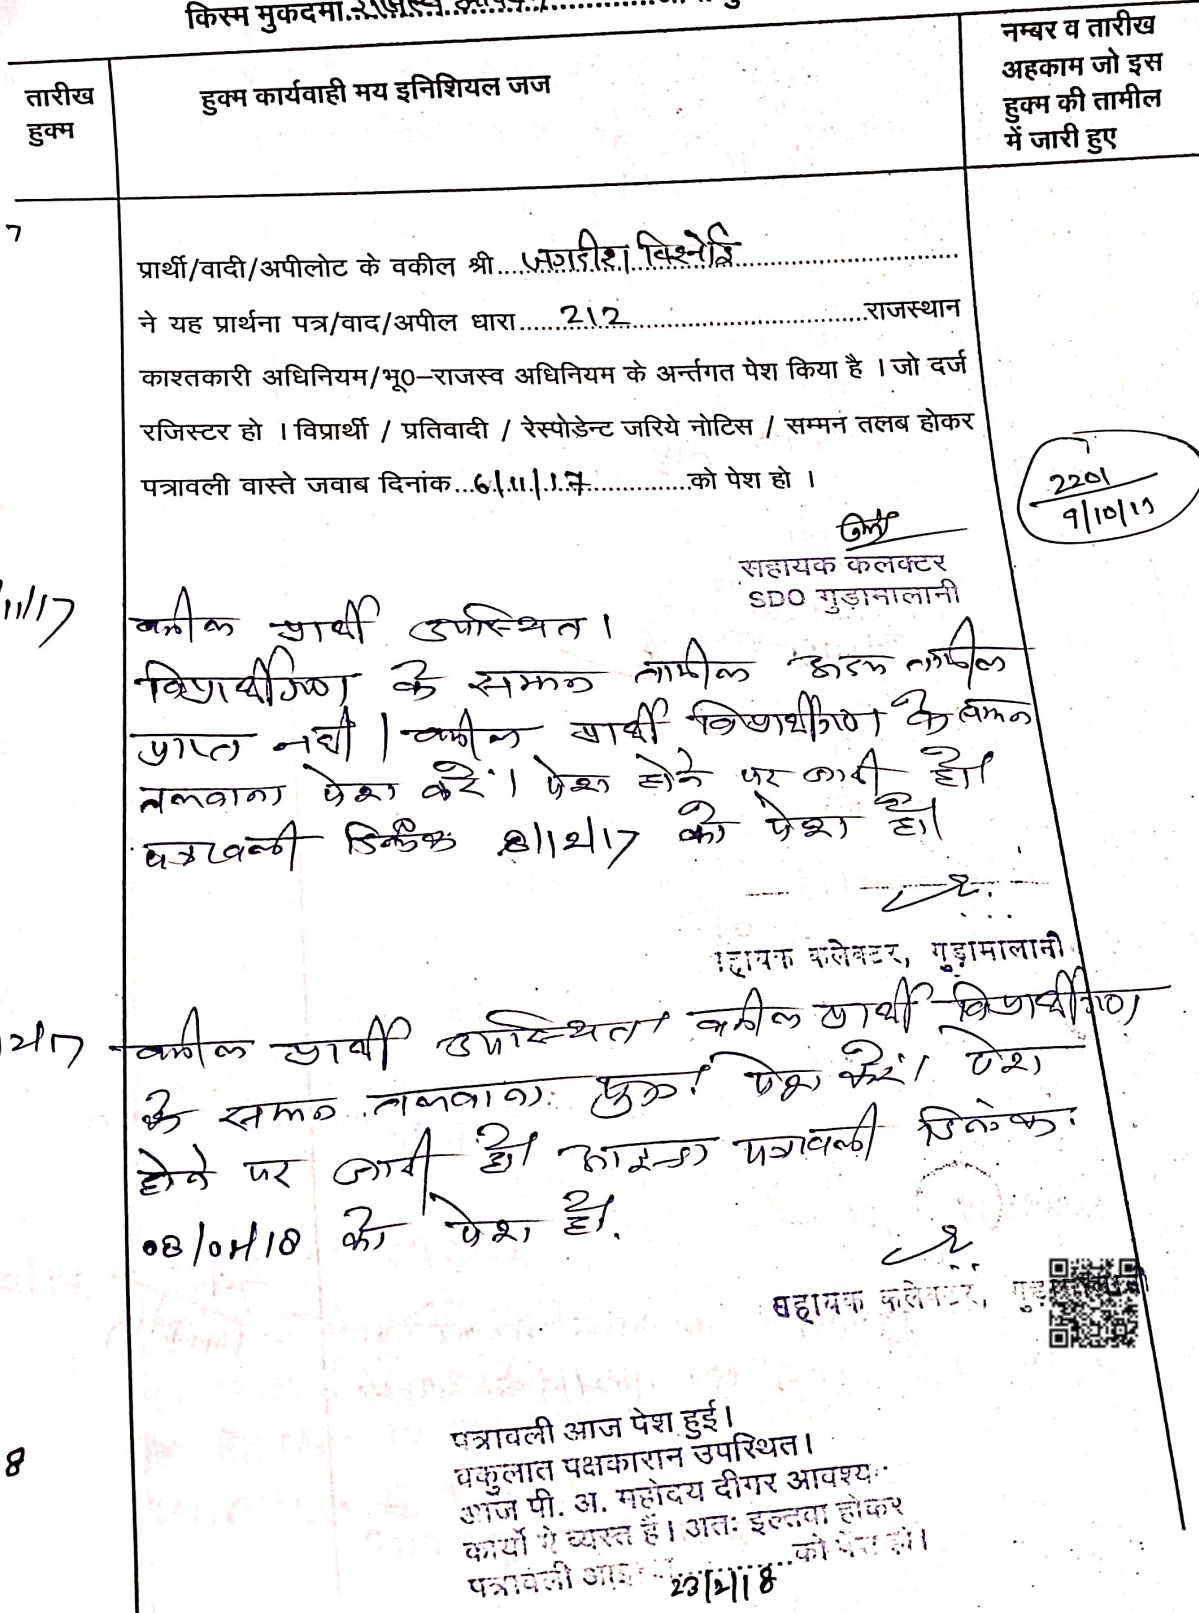 किस्म मुकदमा
तारीख
हुक्म
हुक्म कार्यवाही मय इनिशियल जज
नम्बर व तारीख
अहकाम जो इस
हुक्म की तामील
में जारी हुए
7
प्रार्थी/वादी/अपीलोट के वकील श्री....जगदीश विश्नोई....
ने यह प्रार्थना पत्र/वाद/अपील धारा....212....राजस्थान
काश्तकारी अधिनियम/भू0-राजस्व अधिनियम के अर्न्तगत पेश किया है । जो दर्ज
रजिस्टर हो । विप्रार्थी / प्रतिवादी / रेस्पोडेन्ट जरिये नोटिस / सम्मन तलब होकर
पत्रावली वास्ते जवाब दिनांक...6/11/17....को पेश हो ।
2201
9/10/17
सहायक कलक्टर
SDO गुड़ामालानी
/11/17
वकील प्रार्थी उपस्थित ।
विप्रार्थीगण के समन तामील अदम तामील
प्राप्त नही । वकील प्रार्थी विप्रार्थीगण के समन
तलवाना पेश करें । पेश होने पर जारी हो।
पत्रावली दिनांक 8/12/17 को पेश हो।
सहायक कलेक्टर, गुड़ामालानी
12/17
वकील प्रार्थी उपस्थित। वकील प्रार्थी विप्रार्थीगण
के समन तलवाना पुनः पेश करें। पेश
होने पर जारी हो। आइन्दा पत्रावली दिनांक
08/01/18 को पेश हो.
सहायक कलेक्टर,
8
पत्रावली आज पेश हुई ।
वकुलात पक्षकारान उपस्थित ।
आज पी. अ. महोदय दीगर आवश्य
कार्यो में व्यस्त हैं । अतः इल्तवा होकर
पत्रावली आइ....23/2/18....को पेश हो ।